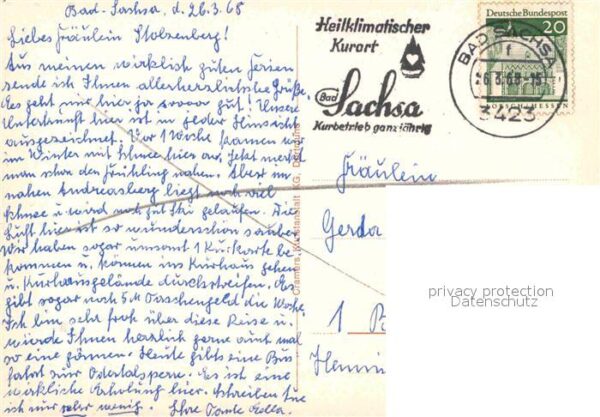 Bad-Sachsa, d. 26.3.68
Liebes Fräulein Stolzenberg!
Aus meinen wirklich guten Ferien
sende ich Ihnen allerherzlichste Grüße.
Es geht mir hier ja soooo gut! Unsere
Unterkunft hier ist in jeder Hinsicht
ausgezeichnet. Vor 1 Woche kamen wir
im Winter mit Schnee hier an. Jetzt merkt
man schon den Frühling nahen. Aber im
nahen Andreasberg liegt noch viel
Schnee u. wird noch gut Ski gelaufen. Die
Luft hier ist so wunderschön sauber
Wir haben sogar umsonst 1 Kurkarte be-
kommen u. können ins Kurhaus gehen
u. Kurhausgelände durchstreifen. Es
gibt sogar noch 5 M Taschengeld die Woche.
Ich bin sehr froh über diese Reise u.
würde Ihnen herzlich gerne auch mal
so eine gönnen. Heute gibts eine Bus
fahrt zur Odertalsperre. Es ist eine
wirkliche Erholung hier. Schreiben tue
ich nur sehr wenig. Ihre Tante Ella.
Cramers Kunstanstalt KG, Dortmund
Heilklimatischer
Kurort
Bad
Sachsa
Kurbetrieb ganzjährig
BAD SACHSA
f
26.3.68-15
3423
Deutsche Bundespost
20
LORSCH/HESSEN
Fräulein
Gerda
1
privacy protection
Datenschutz